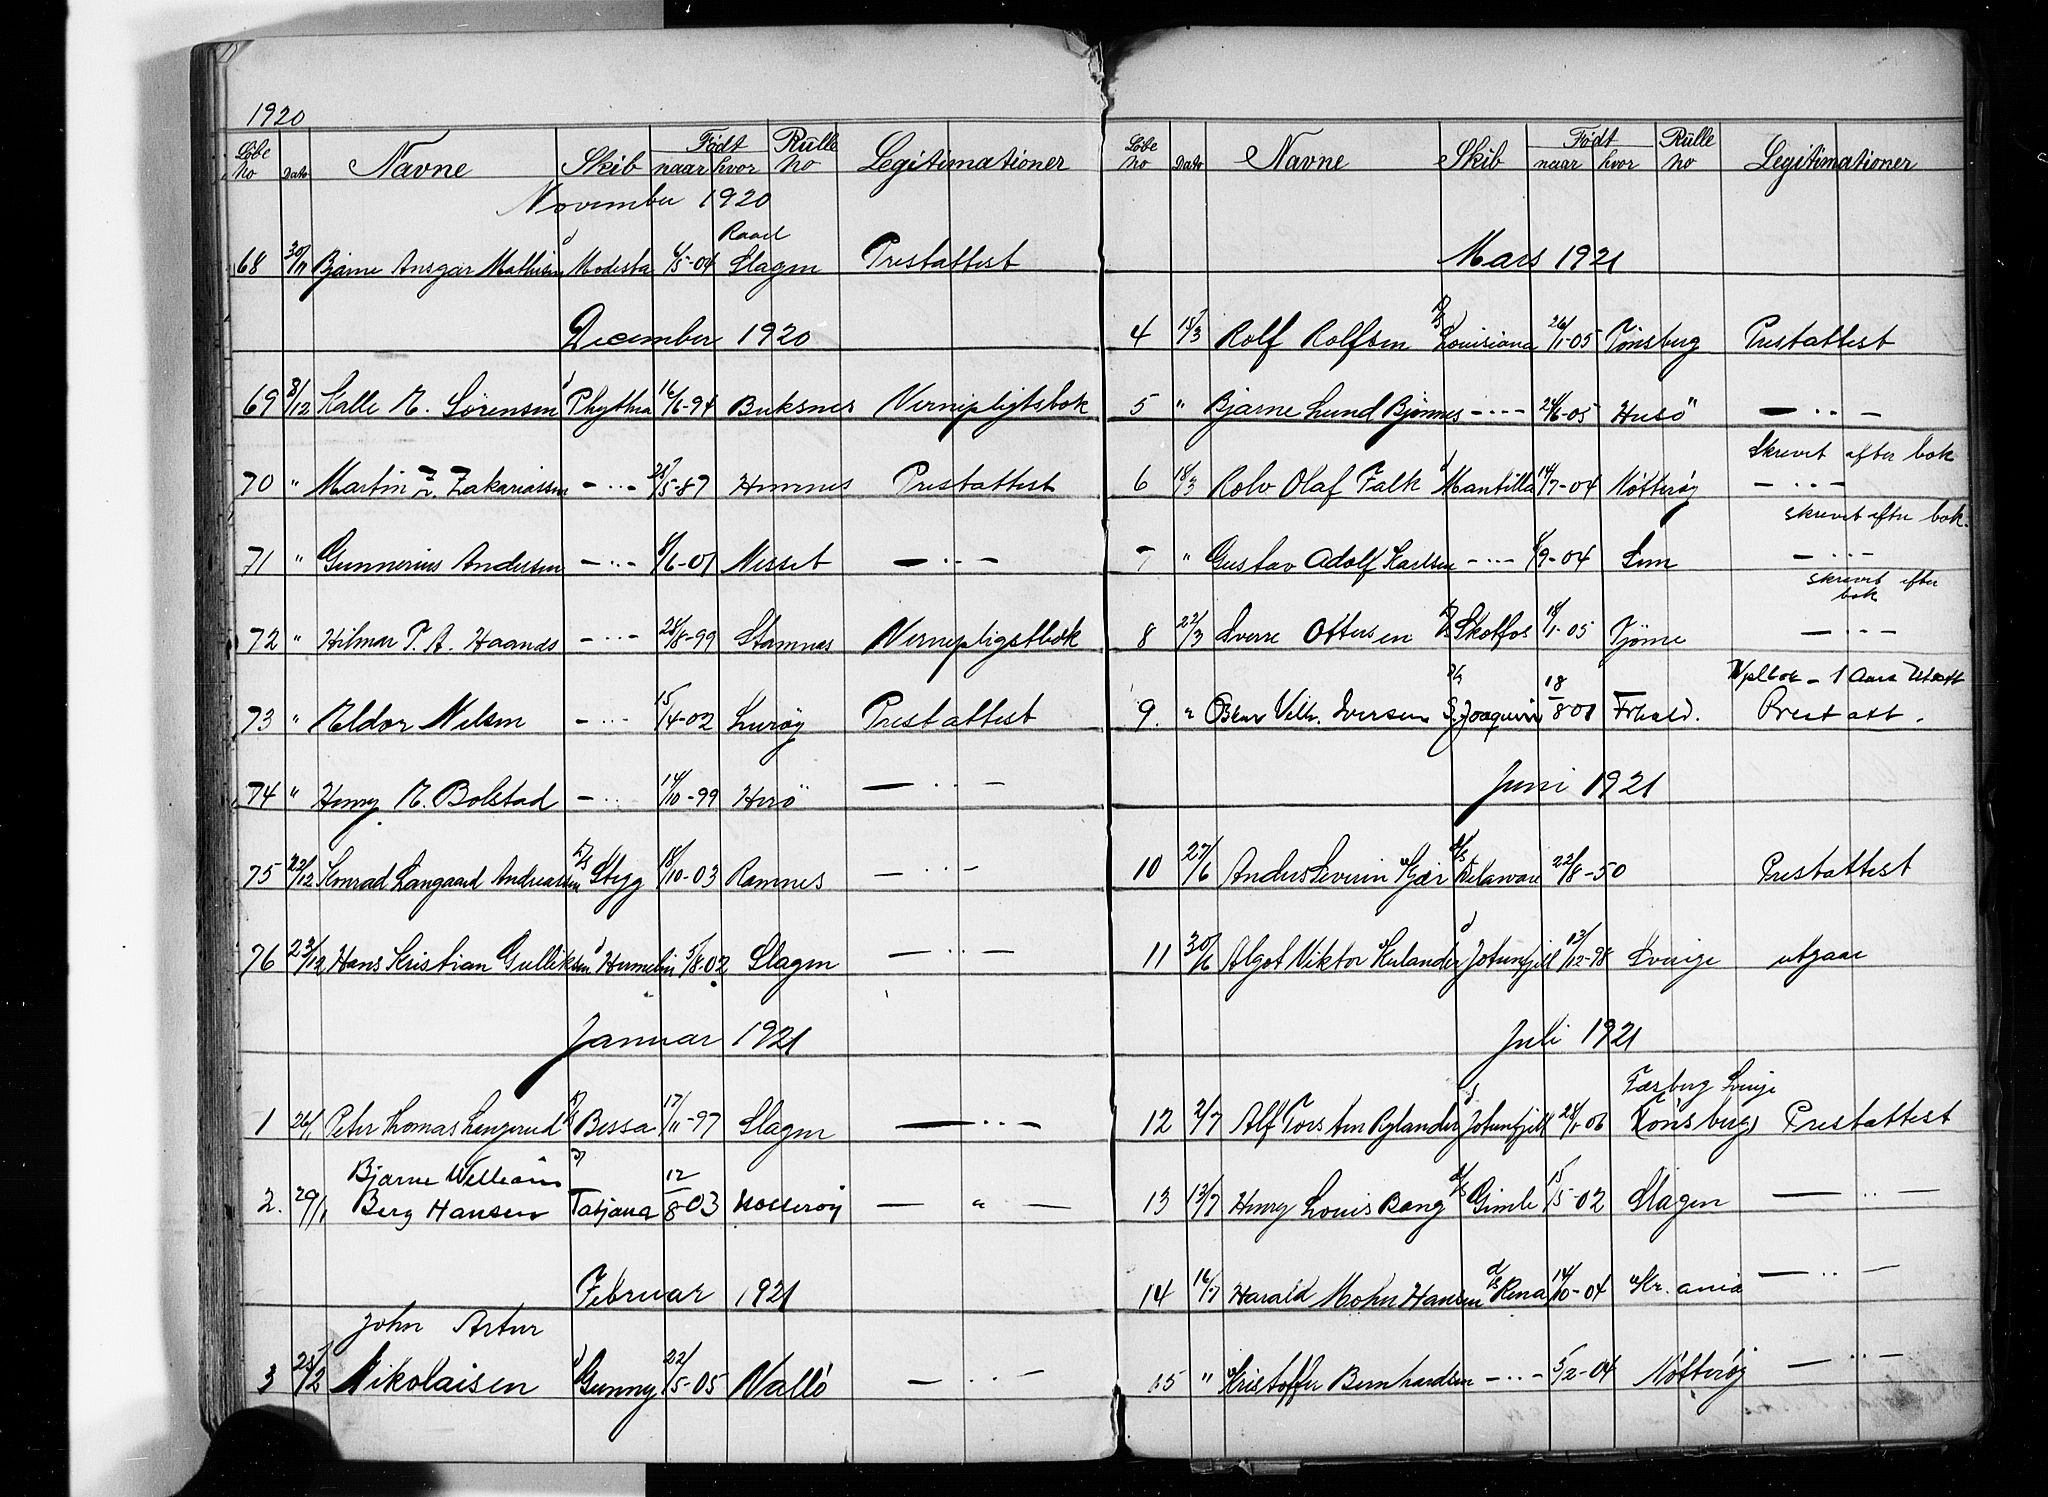 1920
Løbe no Dato Navne Skib Født naar hvor Rulle no Legitimationer
November 1920
Raael
68 30/11 Bjarne Ansgar Mathisen Modesta 6/5-04 Slagen Prestattest
December 1920
69 8/12 Kalle A. Sørensen Phythia 16/6-94 Buksnes Vernepligtsbok
70 " Martin Z. Zakariassen - " - 28/5-87 Hemnes Prestattest
71 " Gunnerius Andersen - " - 9/6-01 Nesset - " -
72 " Hilmar P. A. Haands - " - 28/8-99 Stamnes Vernepligstbok
73 " Aldor Nilsen - " - 15/4-02 Lurøy Prestattest
74 " Henry A. Bolstad - " - 14/10-99 Herö - " -
75 22/12 Konrad Langaard Andreassen D/S Stegg 18/10-03 Ramnes - " -
76 23/12 Hans Kristian Gulliksen Hermelin 5/8-02 Slagen - " -
Januar 1921
1 26/1 Peter Thomas Lengerud Bessa 17/11-97 Slagen - " -
Bjarne William
2. 29/1 Berg Hansen Tatjana 12/8 03 Nötterøy - " -
Februar 1921
John Artur
3 25/2 Nikolaisen Gunny 22/5-05 Vallö - " -
Løbe no Dato Navne Skib Født naar hvor Rulle no Legitimationer
Mars 1921
4 15/3 Rolf Rolfsen D/S Louisiana 26/1-05 Tønsberg Prestattest
5 " Bjarne Lund Bjønnes - " - 24/6-05 Husö - " -
Skrevet efter bok
6 18/3 Rolv Olaf Falk Mantilla 14/7-04 Nøtterøy - " -
skrevet efter bok.
7 " Gustav Adolf Karlsen - " - 8/9-04 Sem - " -
skrevet efter
bok
8 22/3 Sverre Ottersen D/S Skotfos 18/1-05 Tjøme - " -
Vplbok - 1 Aars Utsætt
9. " Oskar Vilh. Iversen S. Joaquin 18/8 01 Frhald. Prest att.
Juni 1921
10 27/6 Anders Severin Kjær d/s Delaware 22/8-50 Prestattest
11 30/6 Algot Viktor Kulander Jotunfjell 13/12-98 Sverige utgaar
Juli 1921
Færberg Sverige
12 2/7 Alf Torsten Rylander Jotunfjell 28/1-06 (Tønsberg) Prestattest
13 13/7 Henry Louis Bang d/s Gimle 15/5-02 Slagen - " -
14 16/7 Harald Mohn Hansen d/s Rena 14/10-04 Kr.ania - " -
15 " Kristoffer Bernhardsen - " - 5/2-04 Nötterøy - " -